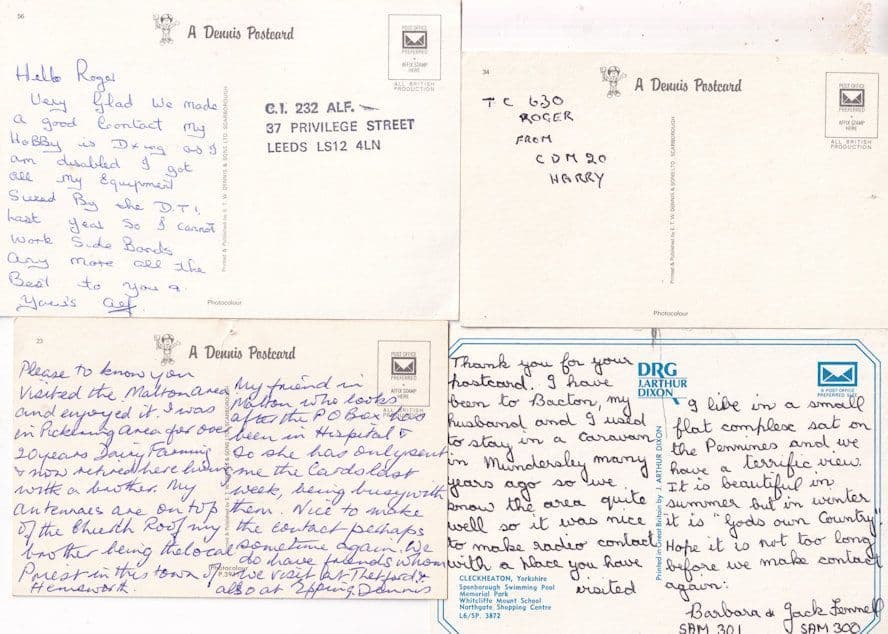 56
A Dennis Postcard
POST OFFICE
PREFERRED
AFFIX STAMP
HERE
ALL BRITISH
PRODUCTION
Hello Roger
Very Glad We made
a good Contact my
HoBBy is Dxing as I
am disabled I got
all my Equipment
Siezed By the D.T.I.
Last year So I cannot
work Side Bands
any more all the
Best to you a
Your's Alf
C.I. 232 ALF.
37 PRIVILEGE STREET
LEEDS LS12 4LN
Printed & Published by E. T. W. DENNIS & SONS LTD. SCARBOROUGH
Photocolour
34
A Dennis Postcard
POST OFFICE
PREFERRED
AFFIX STAMP
HERE
ALL BRITISH
PRODUCTION
TC 630
ROGER
FROM
CDM 20
HARRY
Printed & Published by E. T. W. DENNIS & SONS LTD. SCARBOROUGH
Photocolour
23
A Dennis Postcard
POST OFFICE
PREFERRED
AFFIX STAMP
HERE
Please to know you
visited the Malton area
and enjoyed it. I was
in Pickering area for over
20 years Dairy Farming
& now retired here living
with a brother. My
antennaes are on top
of the Church Roof my
brother being the local
Priest in this town of
Hemsworth.
My friend in
Malton who looks
after the P O Box has
been in Hospital &
so she has only sent
me the Cards last
week, being busy with
them. Nice to make
the contact perhaps
sometime again. We
do have friends whom
we visit at Thetford &
also at Epping. Dennis
Photocolour
DRG
J.ARTHUR
DIXON
A POST OFFICE
PREFERRED SIZE
Thank you for your
postcard. I have
been to Bacton, my
husband and I used
to stay in a caravan
in Mundersley many
years ago so we
know the area quite
well so it was nice
to make radio contact
with a place you have
visited
Printed in Great Britain by J. ARTHUR DIXON
I like in a small
flat complex sat on
the Pennines and we
have a terrific view.
It is beautiful in
summer but in winter
it is "Gods own Country".
Hope it is not too long
before we make contact
again:
Barbara & Jack Fennell
SAM 301 SAM 300
CLECKHEATON, Yorkshire
Spenborough Swimming Pool
Memorial Park
Whitcliffe Mount School
Northgate Shopping Centre
L6/SP. 3872